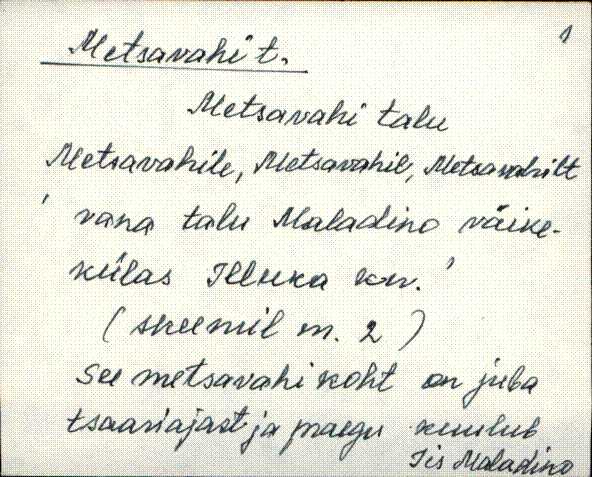 1
Metsavahi t.
Metsavahi talu
Metsavahile, Metsavahil, Metsavahilt
' vana talu Maladino väike-
külas Illuka kn.'
(skeemil m. 2)
See metsavahi koht on juba
tsaariajast ja praegu kuulub
Iis Maladino